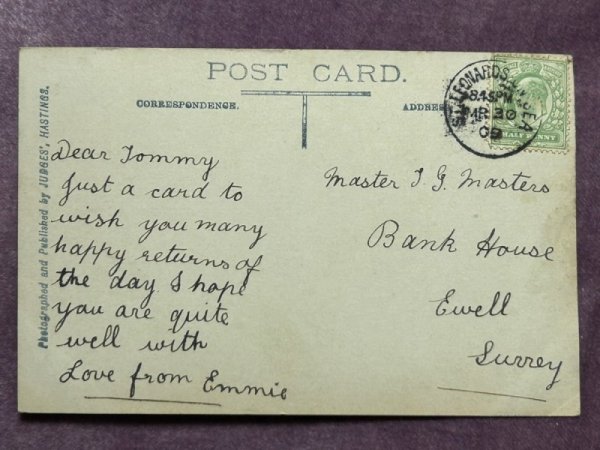 POST CARD.
CORRESPONDENCE.
ADDRESS
ST LEONARDS ON SEA
8.45 PM
MR 30
09
HALF PENNY
Photographed and Published by JUDGES', HASTINGS.
Dear Tommy
Just a card to
wish you many
happy returns of
the day I hope
you are quite
well with
Love from Emmie
Master T. G. Masters
Bank House
Ewell
Surrey